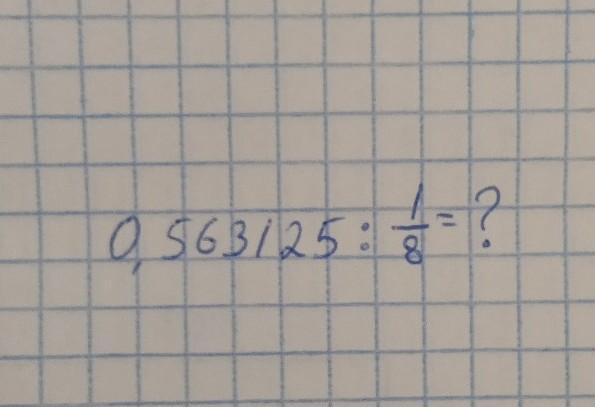 0,563125 : 1/8 = ?